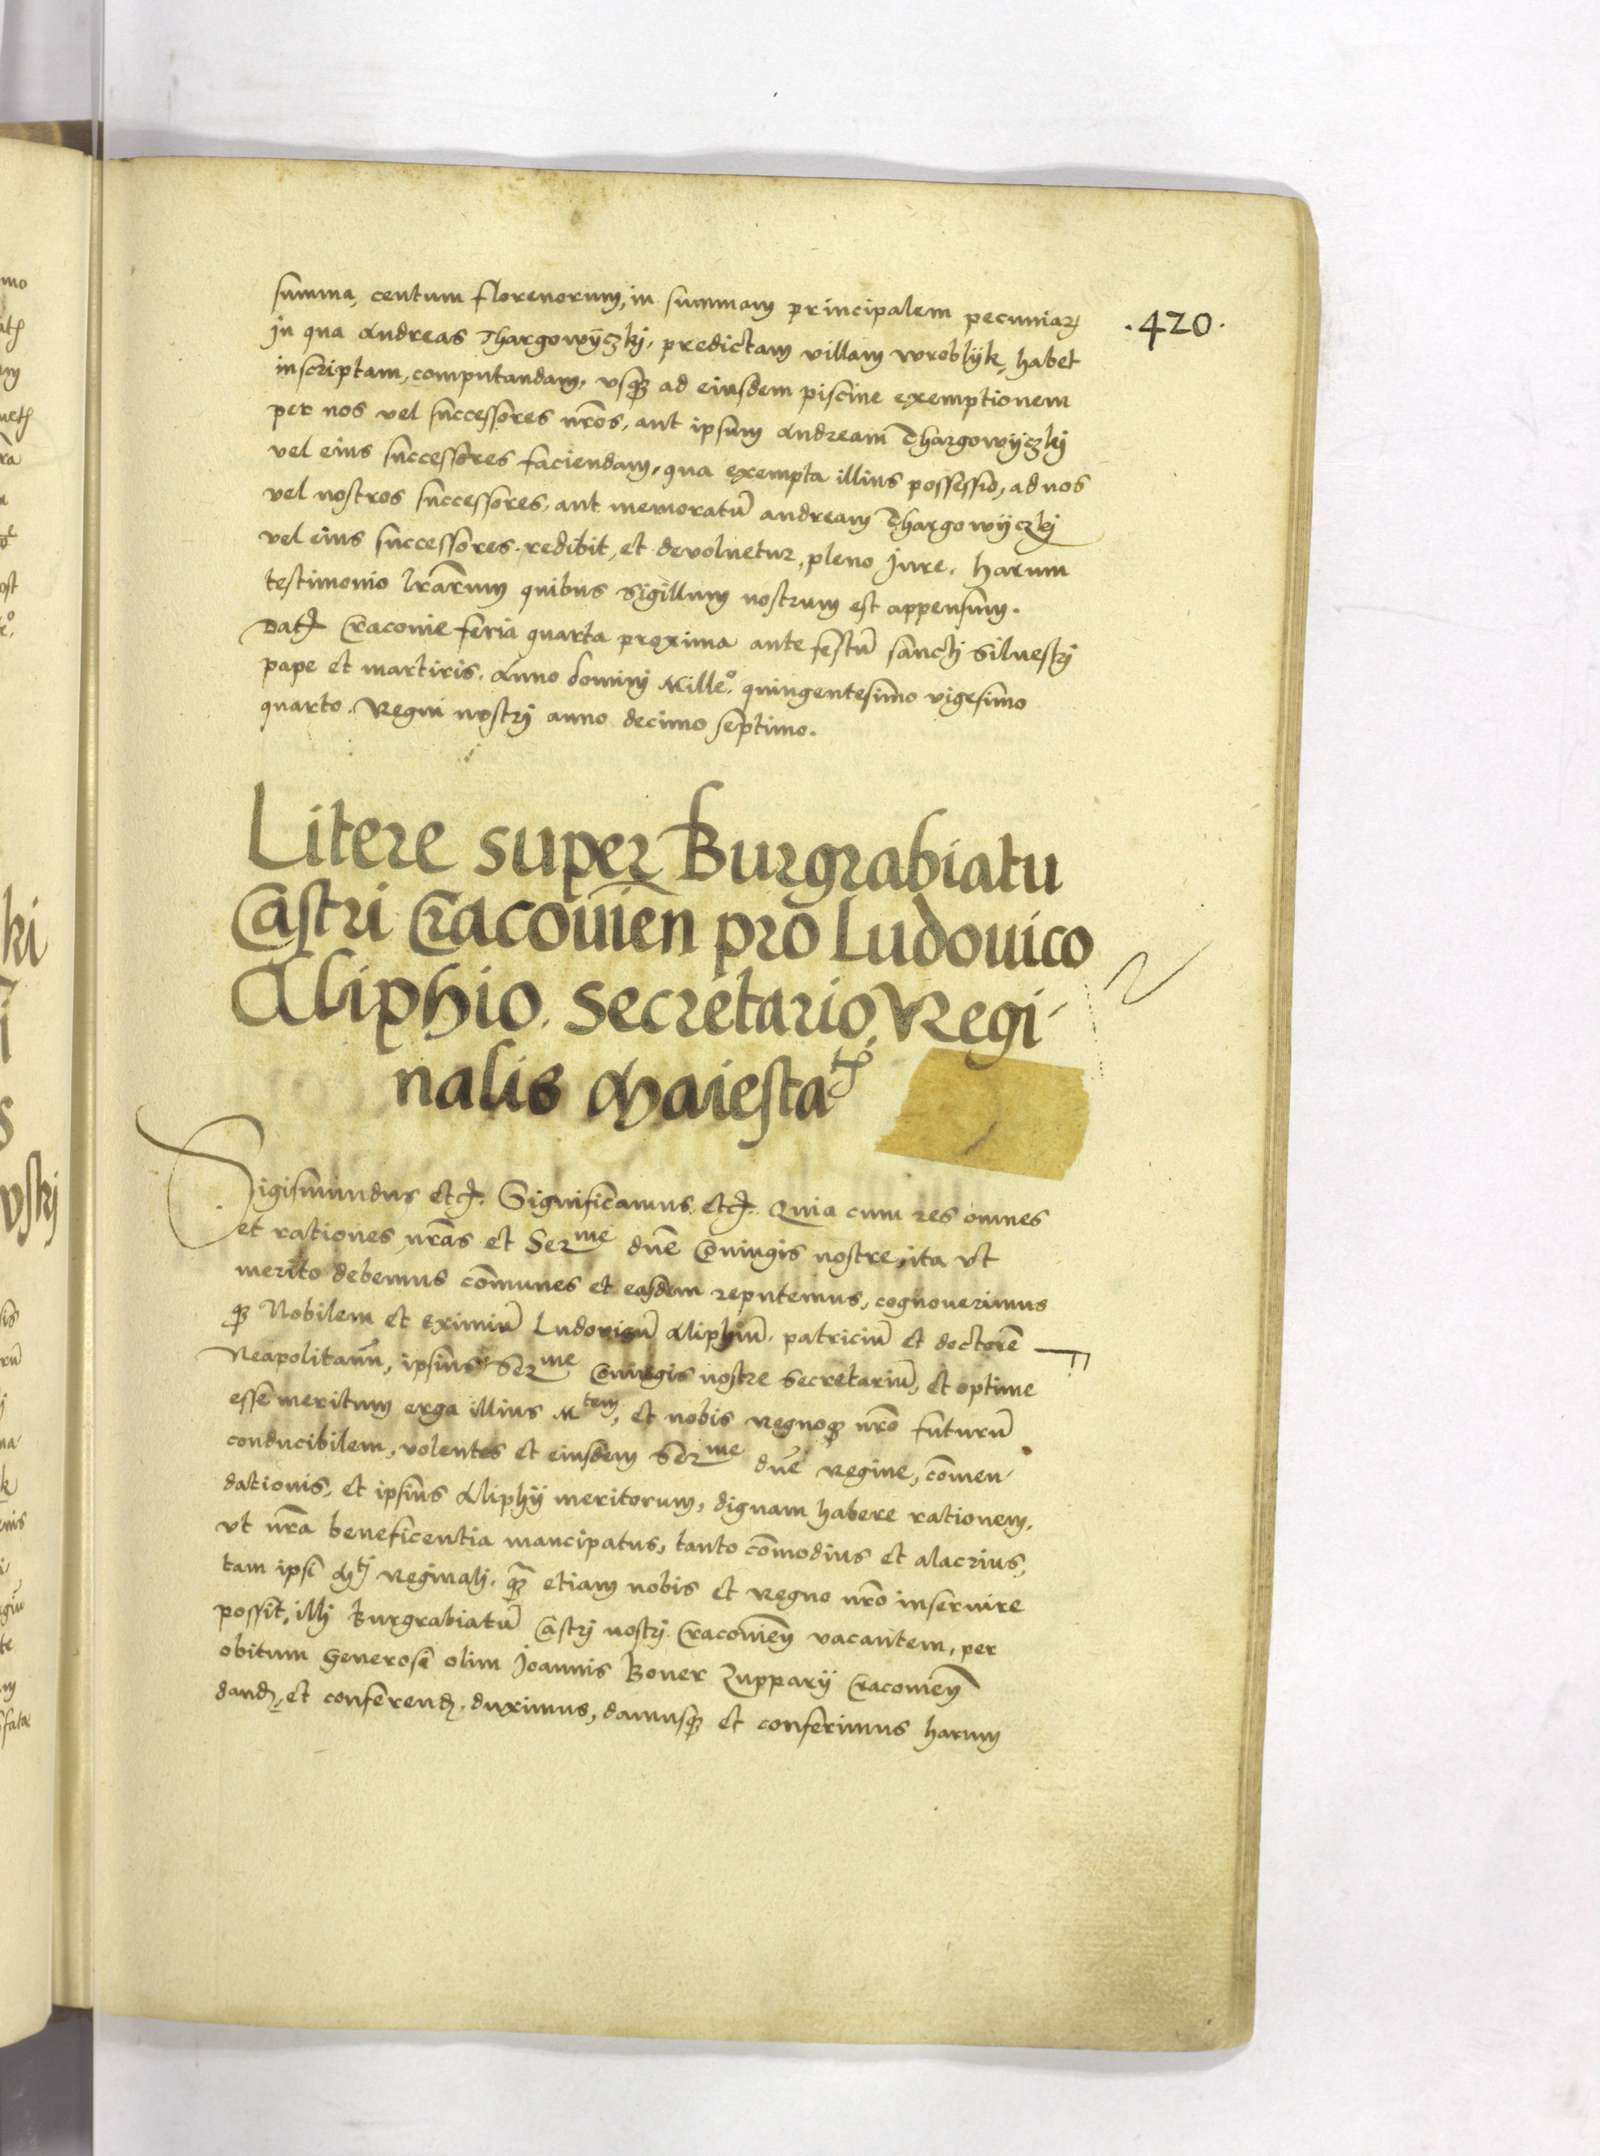 summa, centum florenorum, in summam principalem pecuniarꝫ
.420.
in qua Andreas Thargowÿczkj, predictam villam wroblÿk, habet
inscriptam, computandam, vsqꝫ ad eiusdem piscine exemptionem
per nos vel successores nr̃os, aut ipsum Andream Thargowÿczkj
vel eius successores faciendam, qua exempta illius possessio, ad nos
vel nostros successores, aut memoratũ andream Thargowÿczkj
vel eius successores, redibit, et devoluetur, pleno Jure. Harum
testimonio lr̃arum quibus Sigillum nostrum est appensum.
Datꝭ Cracovie feria quarta proxima ante festũ sanctj Siluestrj
pape et martiris, Anno dominj Milleº. quingentesimo vigesimo
quarto. Regni nostrj anno decimo septimo.
Litere super Burgrabiatu
Castri Cracouieñ pro Ludouico
Aliphio. Secretario Regi-
nalis Maiestatꝭ
Sigismundus etcꝭ. Significamus etcꝭ. Quia cum res omnes
et rationes nr̃as et Serme dñe Coniugis nostre, ita vt
merito debemus cõmunes et easdem reputemus, cognouerimus
qꝫ Nobilem et eximiũ Ludouicũ Aliphiũ, patriciũ et doctorẽ
Neapolitanũ, ipsius Serme Coniugis nostre Secretariũ, et optime
esse meritum erga illius Mtem, et nobis regnoqꝫ nr̃o futurũ
conducibilem, volentes et eiusdem Serme dñe Regine, cõmen-
dationis, et ipsius Aliphÿ meritorum, dignam habere rationem,
vt nr̃a beneficentia mancipatus, tanto cõmodius et alacrius,
tam ipsi Mtj Reginalj, qꝫ̃ etiam nobis et Regno nr̃o inseruire
possit, illj Burgrabiatũ Castrj nostrj Cracouieñ vacantem, per
obitum Generosi olim Joannis Boner Zupparÿ Cracouieñ
dandꝭ, et conferendꝭ, duximus, damusqꝫ et conferimus harum